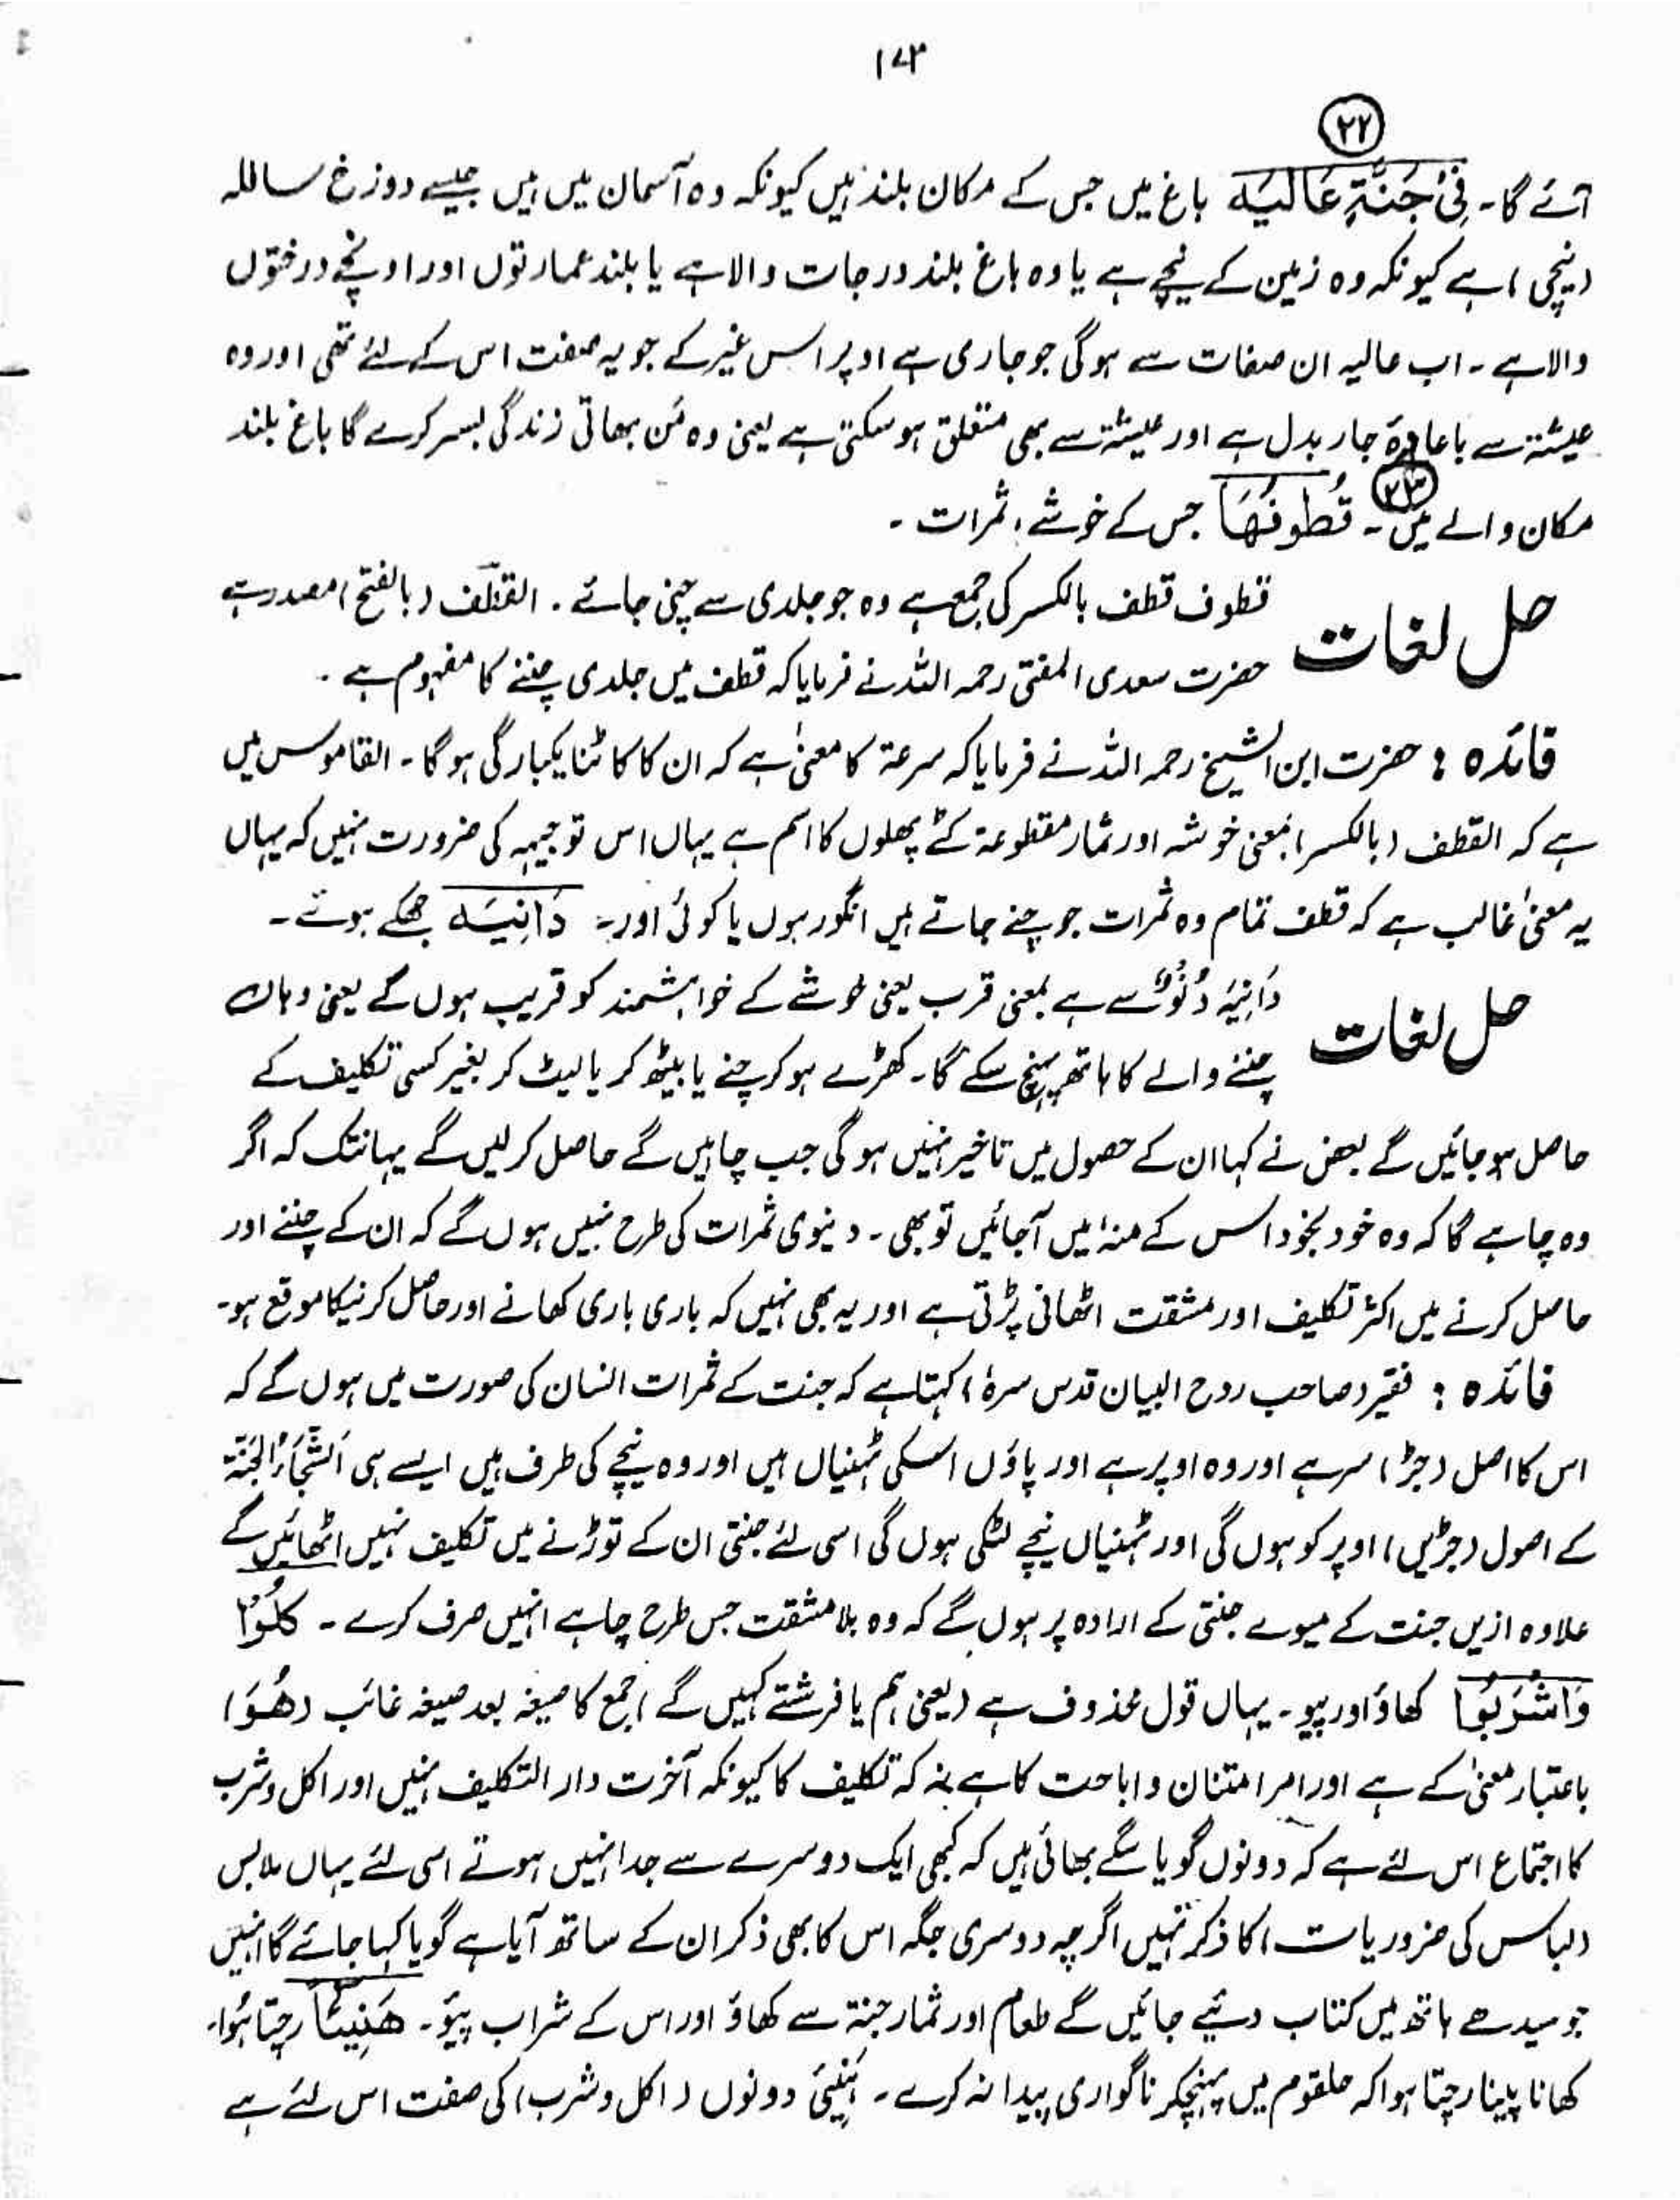 ۱۷۳
۲۲
آئے گا۔ فِیْ جَنَّۃٍ عَالِیَہ باغ میں جس کے مکان بلند ہیں کیونکہ وہ آسمان میں ہیں جیسے دوزخ سافلہ
(نیچی) ہے کیونکہ وہ زمین کے نیچے ہے یا وہ باغ بلند درجات والا ہے یا بلند عمارتوں اور اونچے درختوں
والا ہے ۔ اب عالیہ ان صفات سے ہوگی جو جاری ہے اوپر اس غیر کے جو یہ صفت اس کے لئے تھی اور وہ
عیشۃ سے باعادۂ جار بدل ہے اور عیشۃ سے بھی متعلق ہوسکتی ہے یعنی وہ مَن بھاتی زندگی بسر کرے گا باغ بلند
۲۳
مکان والے میں ۔ قُطُوفُہَا جس کے خوشے، ثمرات ۔
حل لغات
قطوف قطف بالکسر کی جمع ہے وہ جو جلدی سے چنی جائے ۔ القَطف (بالفتح) مصدر ہے
حضرت سعدی المفتی رحمہ اللہ نے فرمایا کہ قطف میں جلدی چننے کا مفہوم ہے ۔
فائدہ : حضرت ابن الشیخ رحمہ اللہ نے فرمایا کہ سرعۃ کا معنیٰ ہے کہ ان کا کاٹنا یکبارگی ہوگا ۔ القاموس میں
ہے کہ القطف (بالکسر) بمعنی خوشہ اور ثمار مقطوعۃ کٹے پھلوں کا اسم ہے یہاں اس توجیہہ کی ضرورت نہیں کہ یہاں
یہ معنیٰ غالب ہے کہ قطف تمام وہ ثمرات جو چنے جاتے ہیں انگور ہوں یا کوئی اور ۔ دَانِیَہ جھکے ہوئے ۔
حل لغات
دَانِیَہ دُنُوٌّ سے ہے بمعنی قرب یعنی خوشے کے خواہشمند کو قریب ہوں گے یعنی وہاں
چننے والے کا ہاتھ پہنچ سکے گا ۔ کھڑے ہوکر چنے یا بیٹھ کر یا لیٹ کر بغیر کسی تکلیف کے
حاصل ہو جائیں گے بعض نے کہا ان کے حصول میں تاخیر نہیں ہوگی جب چاہیں گے حاصل کرلیں گے یہانتک کہ اگر
وہ چاہے گا کہ وہ خود بخود اس کے منہ میں آجائیں تو بھی ۔ دنیوی ثمرات کی طرح نہیں ہوں گے کہ ان کے چننے اور
حاصل کرنے میں اکثر تکلیف اور مشقت اٹھانی پڑتی ہے اور یہ بھی نہیں کہ باری باری کھانے اور حاصل کرنیکا موقع ہو ۔
فائدہ : فقیر (صاحب روح البیان قدس سرہٗ) کہتا ہے کہ جنت کے ثمرات انسان کی صورت میں ہوں گے کہ
اس کا اصل (جڑ) سر ہے اور وہ اوپر ہے اور پاؤں اسکی ٹہنیاں ہیں اور وہ نیچے کی طرف ہیں ایسے ہی اَشْجَارُ الْجَنَّۃ
کے اصول (جڑیں) اوپر کو ہوں گی اور ٹہنیاں نیچے لٹکی ہوں گی اسی لئے جنتی ان کے توڑنے میں تکلیف نہیں اٹھائیں گے
علاوہ ازیں جنت کے میوے جنتی کے ارادہ پر ہوں گے کہ وہ بلا مشقت جس طرح چاہے انہیں صرف کرے ۔ کُلُوْا
وَاشْرَبُوْا کھاؤ اور پیو ۔ یہاں قول محذوف ہے (یعنی ہم یا فرشتے کہیں گے) جمع کا صیغہ بعد صیغہ غائب (ھُوَ)
باعتبار معنیٰ کے ہے اور امر امتنان و اباحت کا ہے نہ کہ تکلیف کا کیونکہ آخرت دار التکلیف نہیں اور اکل و شرب
کا اجتماع اس لئے ہے کہ دونوں گویا سگے بھائی ہیں کہ کبھی ایک دوسرے سے جدا نہیں ہوتے اسی لئے یہاں ملابس
(لباس کی ضروریات) کا ذکر نہیں اگرچہ دوسری جگہ اس کا بھی ذکر ان کے ساتھ آیا ہے گویا کہا جائے گا انہیں
جو سیدھے ہاتھ میں کتاب دئیے جائیں گے طعام اور ثمار جنۃ سے کھاؤ اور اس کے شراب پیؤ ۔ ھَنِیْئًا رچتا ہُوا ۔
کھانا پینا رچتا ہوا کہ حلقوم میں پہنچکر ناگواری پیدا نہ کرے ۔ دونوں (اکل و شرب) کی صفت اس لئے ہے